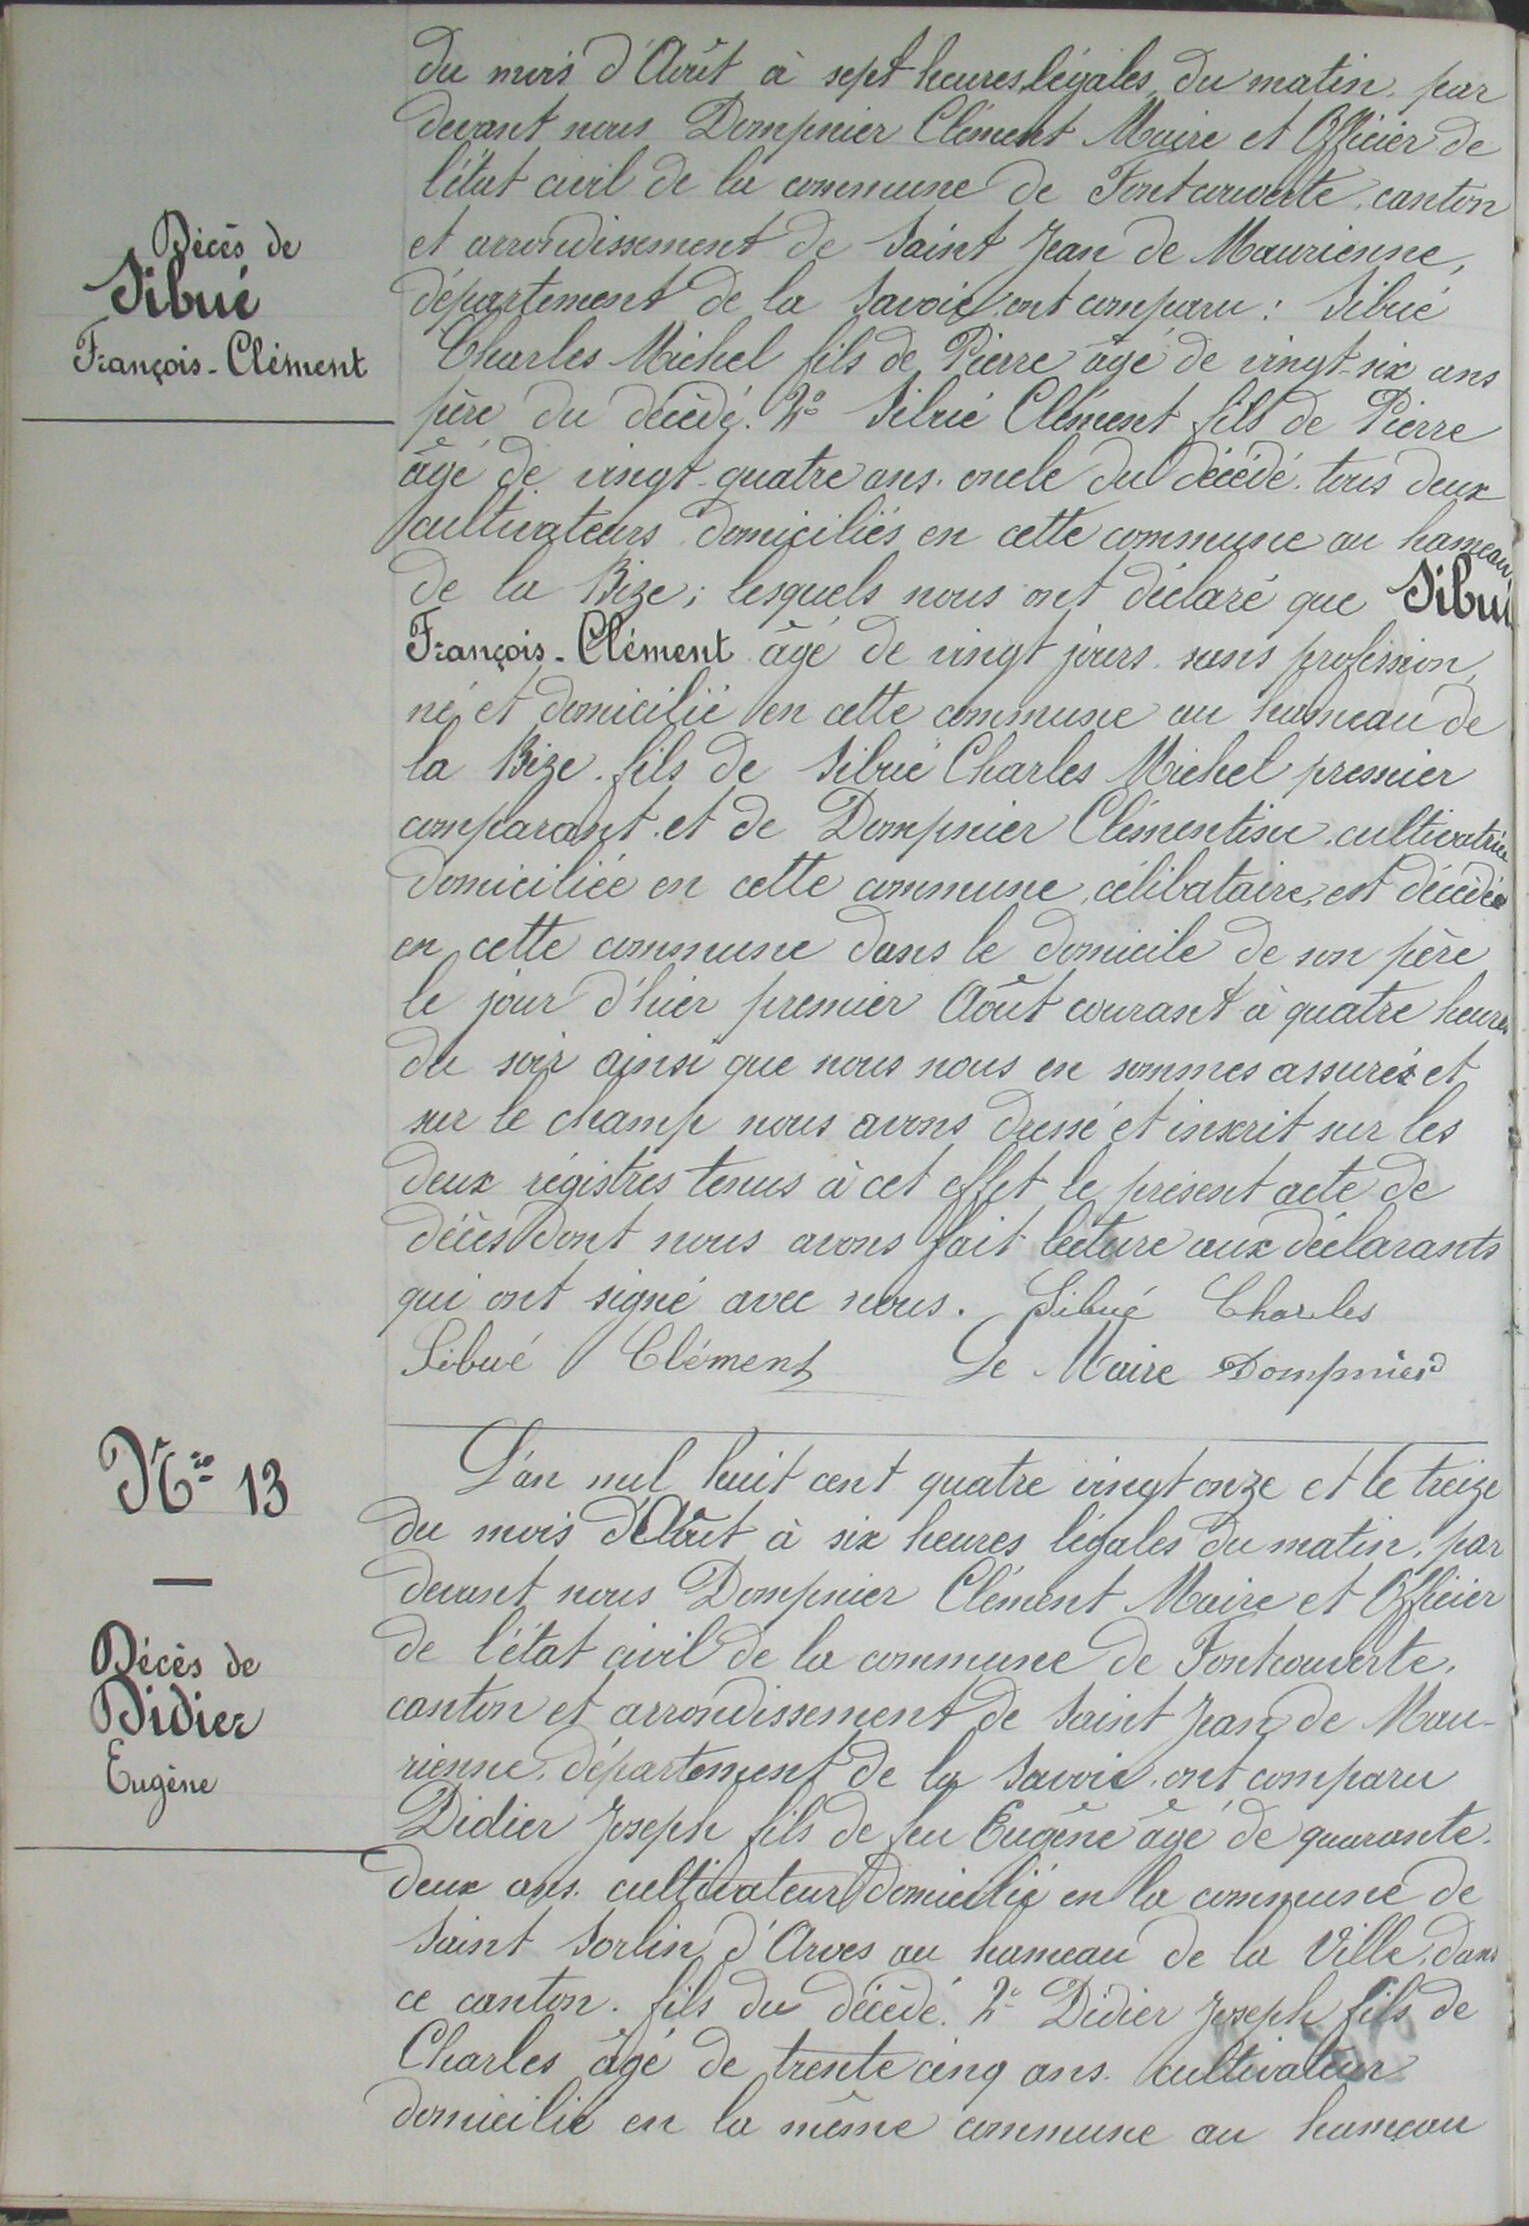 du mois d'Août à sept heures légales du matin, par
devant nous Dompnier Clément Maire et Officier de
l'état civil de la commune de Fontcouverte, canton
Décès de
Sibué
François-Clément
et arrondissement de Saint Jean de Maurienne,
département de la Savoie, ont comparu : Sibué
Charles Michel fils de Pierre âgé de vingt-six ans
père du décédé. 2° Sibué Clément fils de Pierre
âgé de vingt-quatre ans, oncle du décédé, tous deux
cultivateurs domiciliés en cette commune au hameau
de la Bize ; lesquels nous ont déclaré que Sibué
François-Clément âgé de vingt jours, sans profession,
né et domicilié en cette commune au hameau de
la Bize, fils de Sibué Charles Michel premier
comparant, et de Dompnier Clémentine, cultivatrice
domiciliée en cette commune, célibataire, est décédé
en cette commune dans le domicile de son père
le jour d'hier premier Août courant à quatre heures
du soir ainsi que nous nous en sommes assurés et
sur le champ nous avons dressé et inscrit sur les
deux régistres tenus à cet effet le présent acte de
décès dont nous avons fait lecture aux déclarants
qui ont signé avec nous. Sibué Charles
Sibué Clément Le Maire Dompnier
N° 13
Décès de
Didier
Eugène
L'an mil huit cent quatre vingt onze et le treize
du mois d'Août à six heures légales du matin, par
devant nous Dompnier Clément Maire et Officier
de l'état civil de la commune de Fontcouverte,
canton et arrondissement de Saint Jean de Mau-
rienne, département de la Savoie, ont comparu
Didier Joseph fils de feu Eugène âgé de quarante-
deux ans, cultivateur domicilié en la commune de
Saint Sorlin d'Arves au hameau de la Ville, dans
ce canton, fils du décédé. 2° Didier Joseph fils de
Charles âgé de trente cinq ans, cultivateur
domicilié en la même commune au hameau